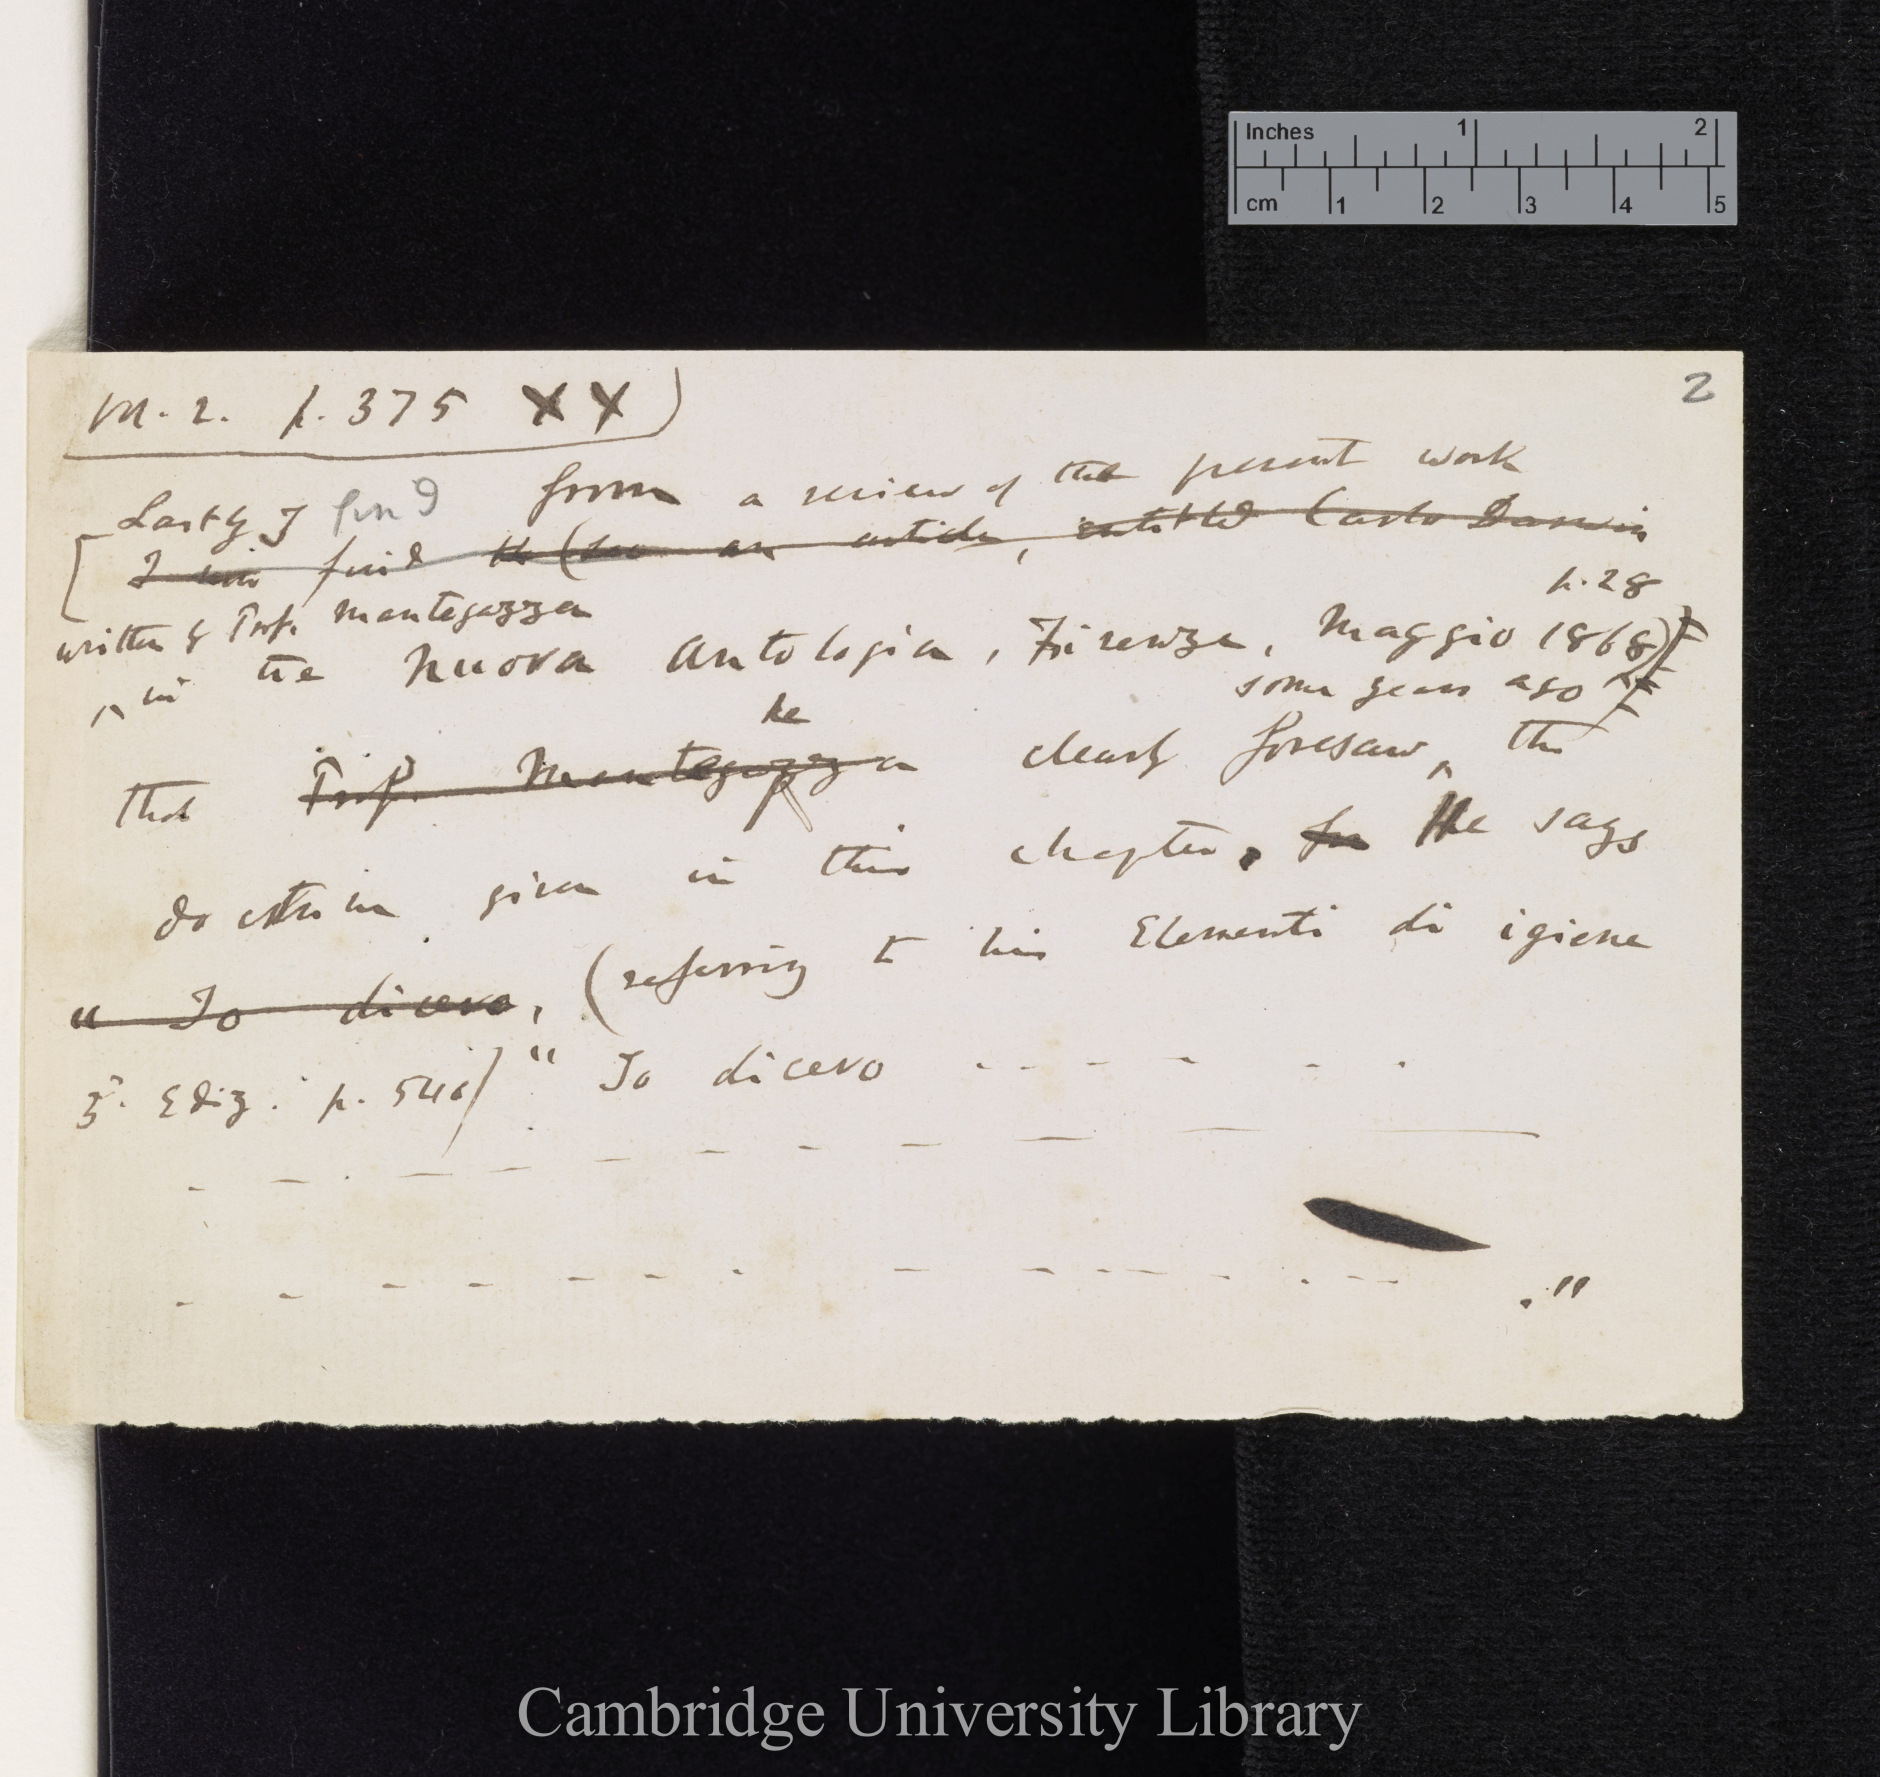 Inches 1 2
cm 1 2 3 4 5
2
M. 2. p. 375 XX
Lastly I find from a review of the present work
I find (see an article, entitled Carlo Darwin
p. 28
written by Prof. Mantegazza
in the Nuova Antologia, Firenze, Maggio 1868)
some years ago
he
that Prof. Mantegazza clearly foresaw the
doctrine given in this chapter. for He says
" Io dicevo, (referring to his Elementi di igiene
3. Ediz. p. 540) " Io dicevo - - - - - -
- - - - - - - - - - - -
- - - - - - - - - - - - - - ."
Cambridge University Library